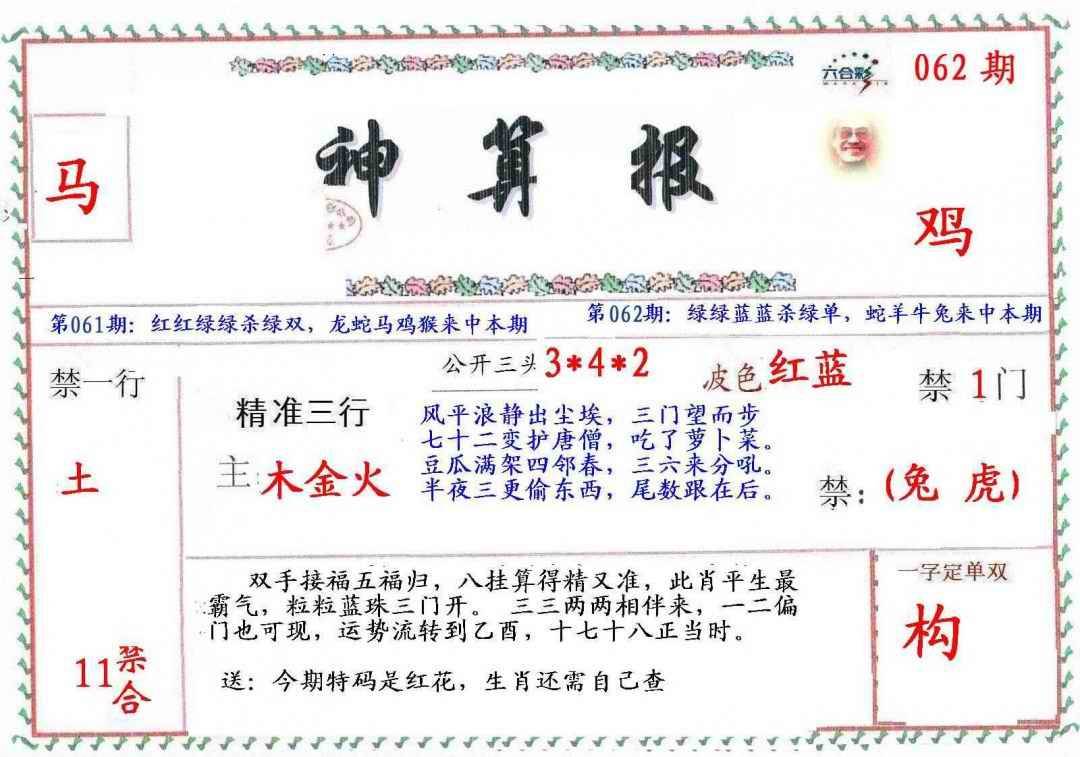 六合彩
062 期
神算报
马
鸡
第061期：红红绿绿杀绿双，龙蛇马鸡猴来中本期
第062期：绿绿蓝蓝杀绿单，蛇羊牛兔来中本期
公开三头 3*4*2
波色 红蓝
禁一行
禁 1 门
精准三行
土
主：木金火
风平浪静出尘埃，三门望而步
七十二变护唐僧，吃了萝卜菜。
豆瓜满架四邻春，三六来分吼。
半夜三更偷东西，尾数跟在后。
禁：(兔 虎)
双手接福五福归，八挂算得精又准，此肖平生最
霸气，粒粒蓝珠三门开。 三三两两相伴来，一二偏
门也可现，运势流转到乙酉，十七十八正当时。
送：今期特码是红花，生肖还需自己查
一字定单双
构
11禁合